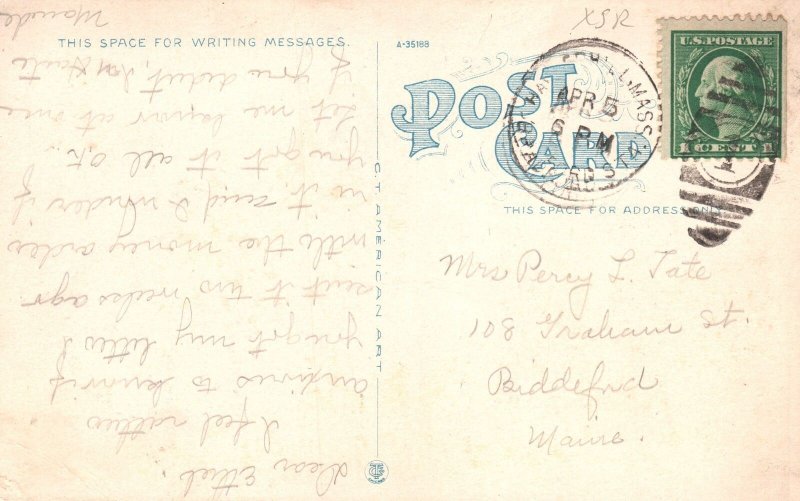 XSR
THIS SPACE FOR WRITING MESSAGES.
A-35188
POST CARD
U.S. POSTAGE
1 CENT 1
MASS.
APR 5
6 PM
STA.
1
THIS SPACE FOR ADDRESS ONLY
C.T. AMERICAN ART
Mrs Percy L. Tate
108 Graham St.
Biddeford
Maine.
Dear Ethel.
I feel rather
anxious to know if
you got my letter I
sent it two weeks ago
with the money order
in it and I wonder if
you got it all ok
Let me know at once
if you didnt,
Maude